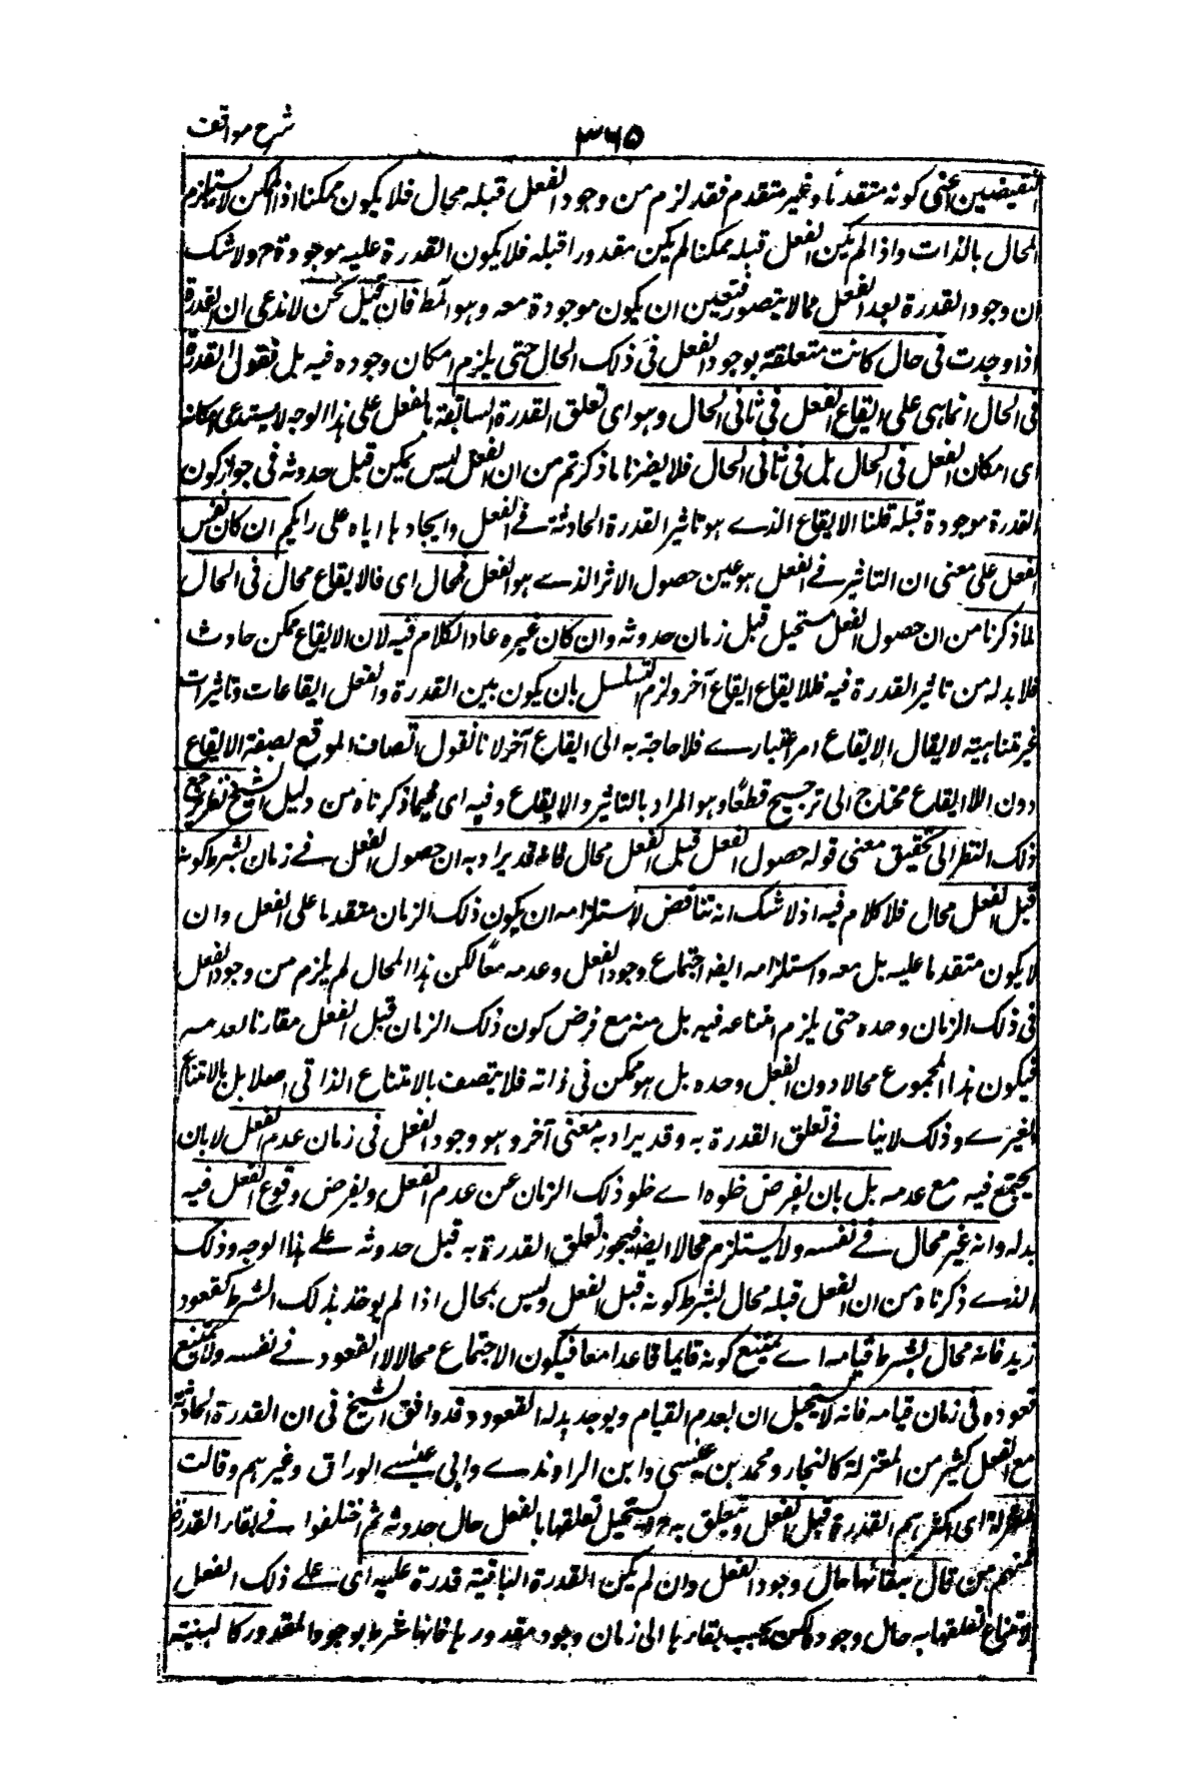 شرح مواقف
۳۶۵
النقيضين اعنى كونه متقدما وغير متقدم فقد لزم من وجود الفعل قبله محال فلا يكون ممكنا اذ الممكن لا يستلزم
المحال بالذات واذا لم يكن الفعل قبله ممكنا لم يكن مقدورا قبله فلا يكون القدرة عليه موجودة ح ولا شك
ان وجود القدرة بعد الفعل مما لا يتصور فتعين ان يكون موجودة معه وهو المط فان قيل نحن لا ندعى ان القدرة
اذا وجدت فى حال كانت متعلقة بوجود الفعل فى ذلك الحال حتى يلزم امكان وجوده فيه بل نقول القدرة
فى الحال انما هى على ايقاع الفعل فى ثانى الحال وهو اى تعلق القدرة السابقة بالفعل على هذا الوجه لا يستدعى امكانه
اى امكان الفعل فى الحال بل فى ثانى الحال فلا يضرنا ما ذكرتم من ان الفعل ليس يمكن قبل حدوثه فى جواز كون
القدرة موجودة قبله قلنا الايقاع الذے هو تاثير القدرة الحادثة فے الفعل وايجادها اياه على رايكم ان كان نفس
الفعل على معنى ان التاثير فے الفعل هو عين حصول الاثر الذے هو الفعل فمحال اى فالايقاع محال فى الحال
لما ذكرنا من ان حصول الفعل مستحيل قبل زمان حدوثه وان كان غيره عاد الكلام فيه لان الايقاع ممكن حادث
فلا بد له من تاثير القدرة فيه فللايقاع ايقاع آخر ولزم التسلسل بان يكون بين القدرة والفعل ايقاعات وتاثيرات
غير متناهية لا يقال الايقاع امر اعتبارے فلا حاجة به الى ايقاع آخر لانا نقول اتصاف الموقع بصفة الايقاع
دون اللا ايقاع محتاج الى ترجيح قطعًا وهو المراد بالتاثير والايقاع وفيه اى فيما ذكرناه من دليل الشيخ نظر يرجع
ذلك النظر الى تحقيق معنى قوله حصول الفعل قبل الفعل محال فانه قد يراد به ان حصول الفعل فے زمان بشرط كونه
قبل الفعل محال فلا كلام فيه اذ لا شك انه تناقض لاستلزامه ان يكون ذلك الزمان متقدما على الفعل وان
لا يكون متقدما عليه بل معه واستلزامه ايضا اجتماع وجود الفعل وعدمه معًا لكن هذا المحال لم يلزم من وجود الفعل
فى ذلك الزمان وحده حتى يلزم امتناعه فيه بل منه مع فرض كون ذلك الزمان قبل الفعل مقارنا لعدمه
فيكون هذا المجموع محالا دون الفعل وحده بل هو ممكن فى ذاته فلا يتصف بالامتناع الذاتى اصلا بل بالامتناع
الغيرے وذلك لا ينافے تعلق القدرة به وقد يراد به معنى آخر وهو وجود الفعل فى زمان عدم الفعل لا بان
يجتمع فيه مع عدمه بل بان يفرض خلوه اے خلو ذلك الزمان عن عدم الفعل ويفرض وقوع الفعل فيه
بدله وانه غير محال فے نفسه ولا يستلزم محالا ايضا فيجوز تعلق القدرة به قبل حدوثه علے هذا الوجه وذلك
الذے ذكرناه من ان الفعل قبله محال بشرط كونه قبل الفعل وليس بمحال اذا لم يوخذ بذلك الشرط كقعود
زيد فانه محال بشرط قيامه اے يمتنع كونه قايما قاعدا معا فيكون الاجتماع محالا لا القعود فے نفسه ولا يمتنع
قعوده فى زمان قيامه فانه لا يستحيل ان يعدم القيام ويوجد بدله القعود وقد وافق الشيخ فى ان القدرة الحادثة
مع الفعل كثير من المعتزلة كالنجار ومحمد بن عيسى وابن الراوندے وابى عيسے الوراق وغيرهم وقالت
المعتزلة اى اكثرهم القدرة قبل الفعل وتتعلق به ح ويستحيل تعلقها بالفعل حال حدوثه ثم اختلفوا فے بقاء القدرة
فمنهم من قال ببقائها حال وجود الفعل وان لم يكن القدرة الباقية قدرة عليه اى علے ذلك الفعل
لامتناع تعلقها به حال وجوده لكن يجب بقاءها الى زمان وجود مقدورها فانها شرط لوجود المقدور كالبنية